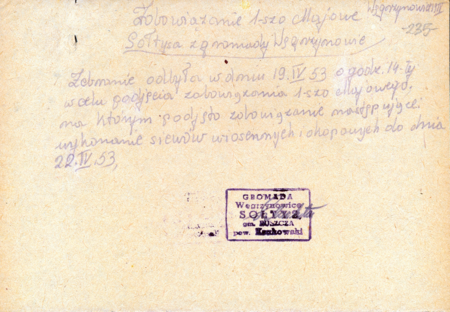 Zobowiązanie 1-szo Majowe
-235-
Sołtysa z gromady Węgrzynowie
Zebranie odbyła w dniu 19.IV 53 o godz. 14-ty
w celu podjęcia zobowiązania 1-szo Majowego,
na którym podjęto zobowiązanie następujące:
wykonanie siewów wiosennych i okopowych do dnia
22.IV.53,
GROMADA
Węgrzynowice
SOŁTYS
gm. RUSZCZA
pow. Krakowski